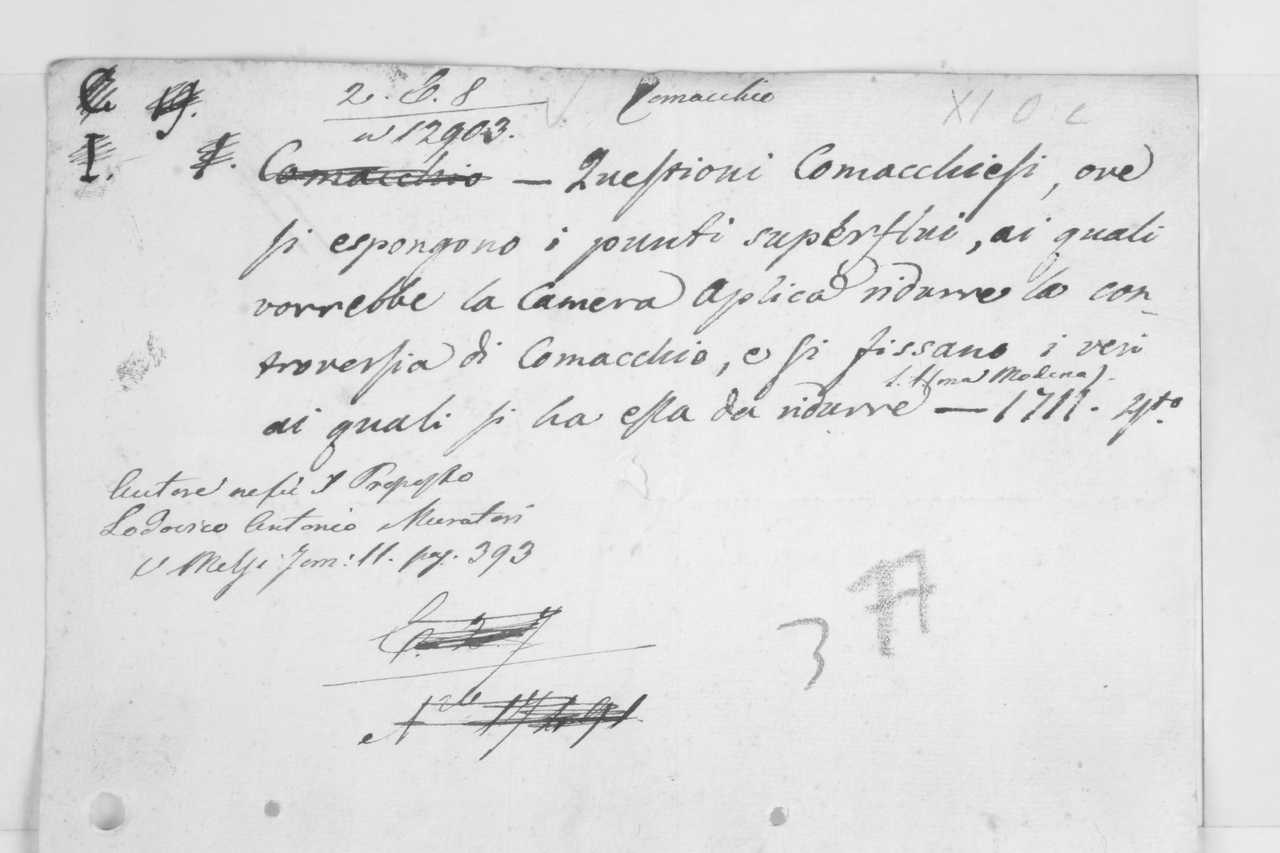 2. C. 8 Comacchio XI O c
n 12903.
I. Comacchio — Questioni Comacchiesi, ove
si espongono i punti superflui, ai quali
vorrebbe la Camera Aplica ridurre la con
troversia di Comacchio, e si fissano i veri
(ma Modena)
ai quali si ha essa da ridurre — 1711. 4to
Autore ne fù il Proposto
Lodovico Antonio Muratori
V Melzi Tom: II. pag. 393
C. 2. 7
3 77